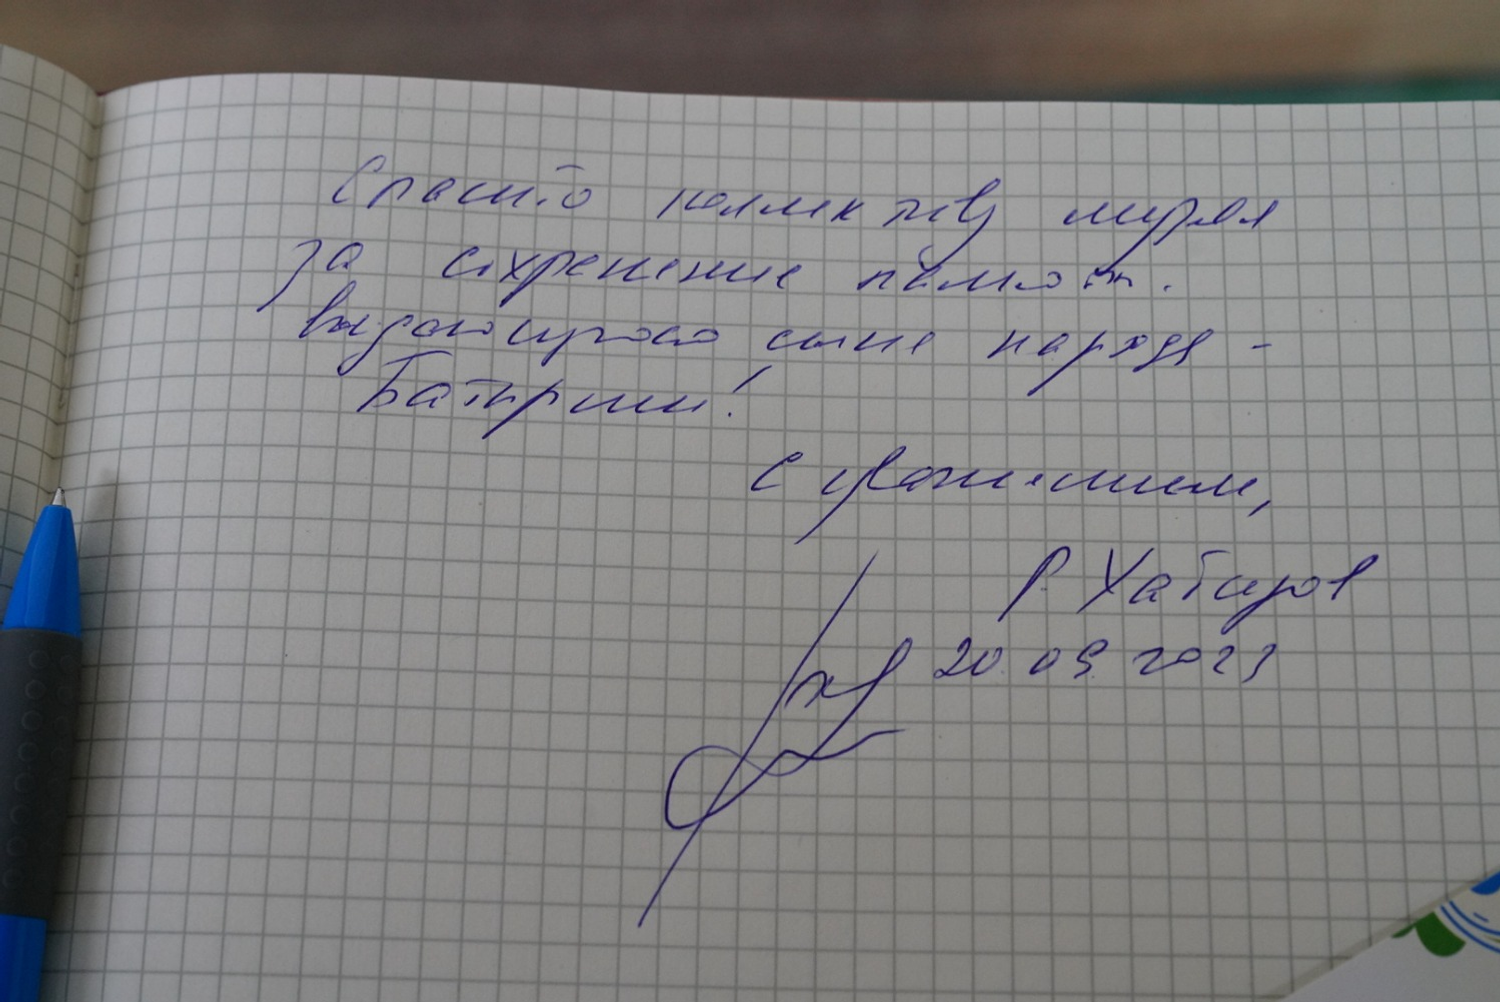 Спасибо коллективу музея
за сохранение памяти
выдающегося сына народа -
Батырши!
С уважением,
Р. Хабиров
20.09.2023